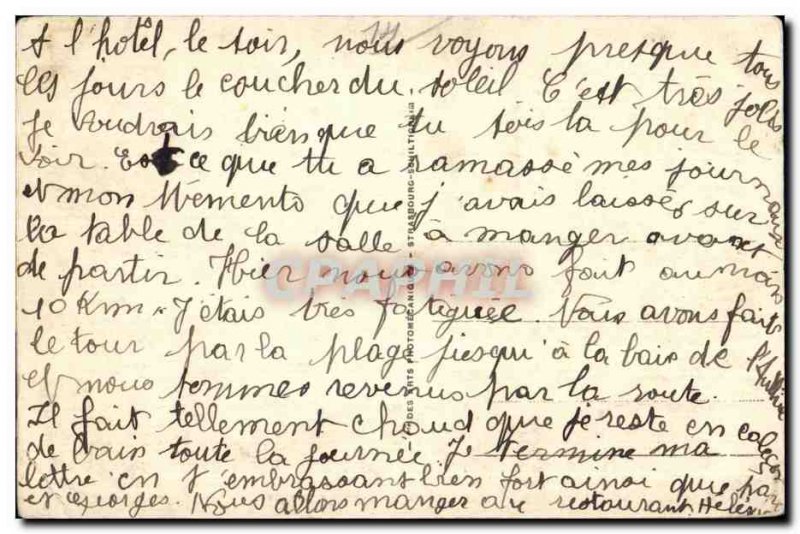 A l'hôtel, le soir, nous voyons presque tous
les jours le coucher du soleil C'est très jolis
je voudrais bien que tu sois là pour le
voir. Est ce que tu a ramassé mes journaux
et mon Mémento que j'avais laissés sur
la table de la salle à manger avant
de partir. Hier nous avons fait au moins
10 Km. J'étais très fatiguée. Nous avons fait
le tour par la plage jusqu'à la baie de
et nous sommes revenus par la route.
Il fait tellement chaud que je reste en caleçon
de bain toute la journée Je termine ma
lettre en t'embrassant bien fort ainsi que
et Georges. Nous allons manger au restaurant. Hélène
STRASBOURG-SCHILTIGHEIM
DES ARTS PHOTOMÉCANIQUES
CPAPHIL